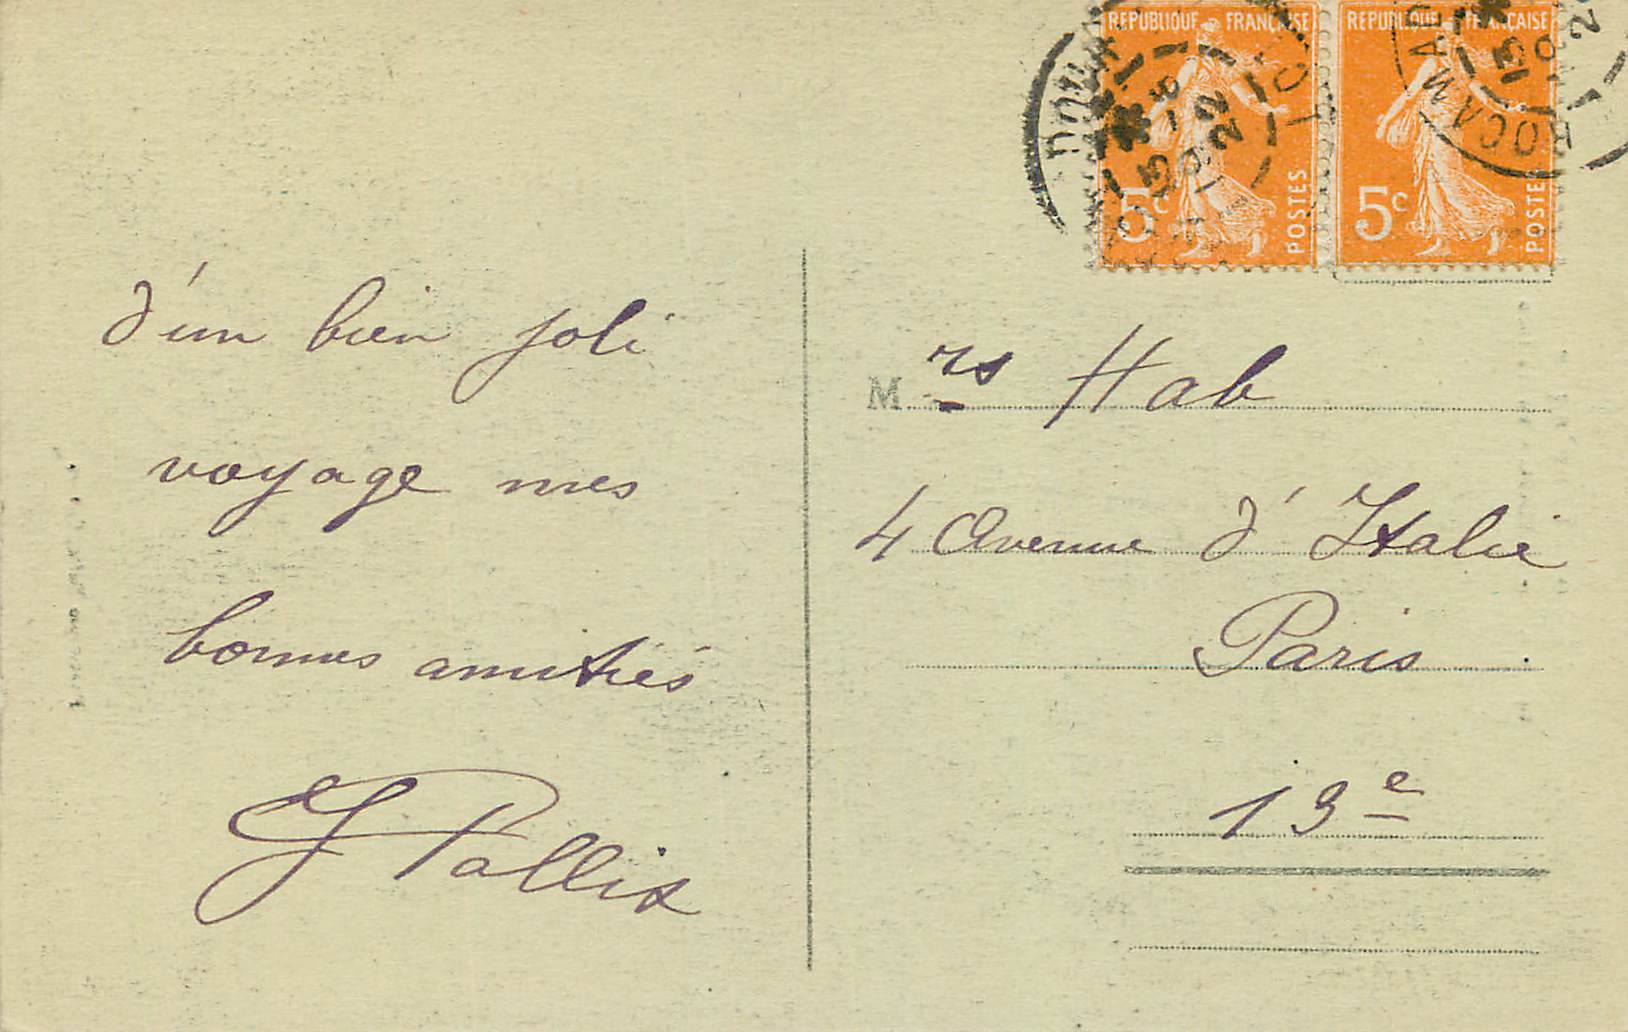 REPUBLIQUE FRANÇAISE
REPUBLIQUE FRANÇAISE
5c POSTES
5c POSTES
ROCAMAD
13
22
d'un bien joli
voyage mes
bonnes amitiés
Mrs Hab
4 Avenue d'Italie
Paris
13e